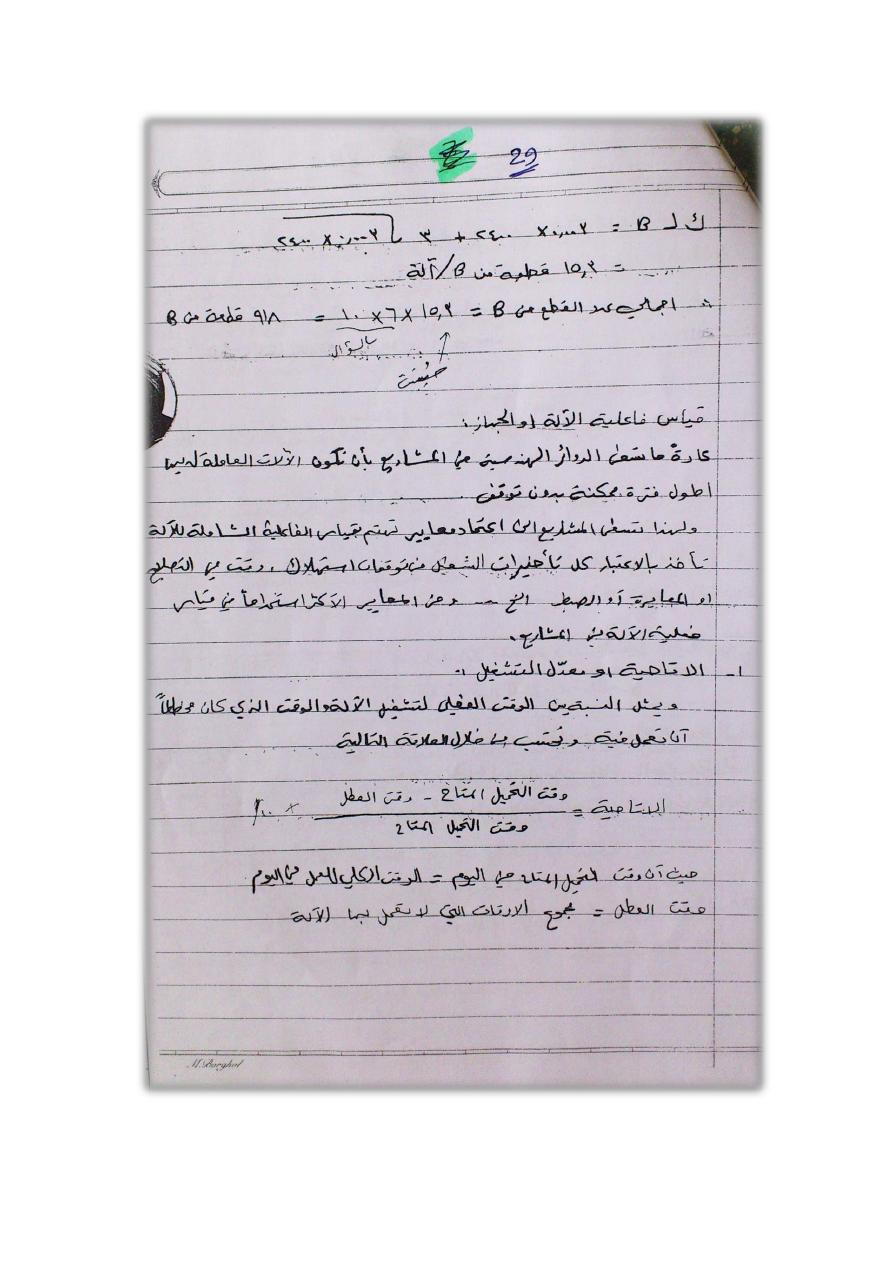 29
ك ل B = ٠,٠٠٢ × ٢٤٠٠ + ٣ √ ٢٤٠٠ × ٠,٠٠٣
= ١٥,٣ قطعة من B/آلة
∴ اجمالي عدد القطع من B = ١٥,٣ × ٦ × ١٠ = ٩١٨ قطعة من B
بالسؤال
قياس فاعلية الآلة او الجهاز :
عادةً ما تسعى الدوائر الهندسية في المشاريع بأن تكون الآلات العاملة لديها
اطول فترة ممكنة بدون توقف .
ولهذا تسعى المشاريع الى اعتماد معايير تهتم بقياس الفاعلية الشاملة للآلة
تأخذ بالاعتبار كل تأخيرات التشغيل من توقفات استهلاك ، وقت في التصليح
او المعايرة أو الضبط الخ -- ومن المعايير الأكثر استخداماً في قياس
فعلية الآلة في المشاريع .
١- الاتاحية او معدّل التشغيل :-
ويمثل النسبة بين الوقت الفعلي لتشغيل الآلة والوقت الذي كان مخططاً
أن تعمل فية وتحتسب من خلال العلاقة التالية
الاتاحية = وقت التحميل المتاح - وقت العطل / وقت التحميل المتاح × ١٠٠٪
حيث أن وقت التحميل المتاح في اليوم = الوقت الكلي للعمل في اليوم
وقت العطل = مجموع الاوقات التي لا تعمل بها الآلة
M.Barghol